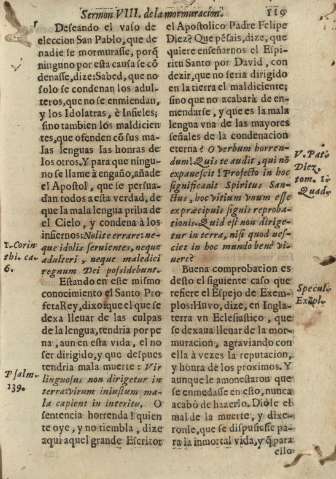 Sermon VIII. de la mormuracion.
119
Deseando el vaso de
eleccion San Pablo, que de
nadie se murmurasse, porq̃
ninguno por esta causa se cõ
denasse, dize: Sabed, que no
solo se condenan los adul-
teros, que no se enmiendan,
y los Idolatras, è Infieles;
sino tambien los maldicien
tes, que ofenden cõ sus ma-
las lenguas las honras de
los otros. Y para que ningu-
no se llame à engaño, añade
el Apostol, que se persua-
dan todos a esta verdad, de
que la mala lengua priba de
el Cielo, y condena à los
infiernos: Nolite errare: ne-
que idolis seruientes, neque
adulteri, neque maledici
regnum Dei possidebunt.
Estando en este mismo
conocimiento el Santo Pro
feta Rey, dixo: que el que se
dexa lleuar de las culpas
de la lengua, tendria por pe
na, aun en esta vida, el no
ser dirigido, y que despues
tendria mala muerte: Vir
linguosus non dirigetur in
terra: virum iniustum ma-
la capient in interitu. O
sentencia horrenda! quien
te oye, y no tiembla, dize
aqui aquel grande Escritor
1. Corin
thi. ca.
6.
Psalm.
139.
el Apostolico Padre Felipe
Diez? Que pẽsais, dize, que
quiere enseñarnos el Espi-
ritu Santo por David, con
dezir, que no seria dirigido
en la tierra el maldiciente;
sino que no acabarà de en-
mendarse, y que es la mala
lengua vna de las mayores
señales de la condenacion
eterna? O verbum horren-
dum! Quis te audit, qui nõ
expauescit! Profecto in hoc
significauit Spiritus San-
ctus, hoc vitium vnum esse
ex præcipuis signis reproba-
tionis. Quid est non dirige-
tur in terra, nisi quod nes-
ciet in hoc mundo benè vi-
uere?
Buena comprobacion es
desto el siguiente caso que
refiere el Espejo de Exem-
plos. Huvo, dize, en Ingla-
terra vn Eclesiastico, que
se dexaua lleuar de la mor-
muracion, agraviando con
ella à vezes la reputacion,
y honra de los proximos. Y
aunque le amonestaron que
se enmedasse en esto, nunca
acabó de hazerlo. Diòle el
mal de la muerte, y dixe-
ronle, que se dispusiesse pa-
ra la inmortal vida, y q̃ para
ello
V. Pat.
Diez
tom. 1.
Quad.
Specul.
Exẽpl.